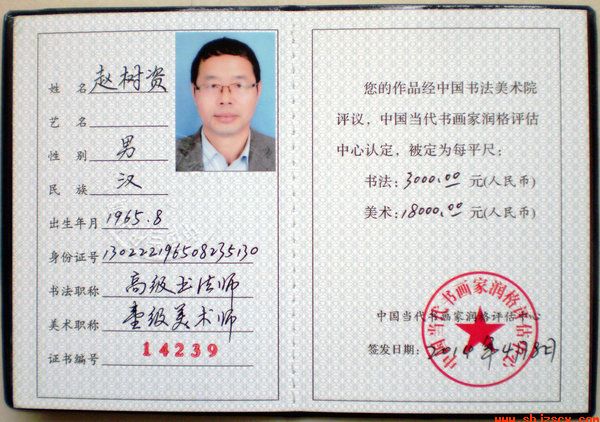 姓 名 赵树资
艺 名
性 别 男
民 族 汉
出生年月 1965.8
身份证号 130222196508235130
书法职称 高级书法师
美术职称 壹级美术师
证书编号 14239
您的作品经中国书法美术院
评议，中国当代书画家润格评估
中心认定，被定为每平尺：
书法：3000.00 元(人民币)
美术：18000.00 元(人民币)
中国当代书画家润格评估中心
中国当代书画家润格评估中心
签发日期：2010年4月8日
www.shjzscx.com